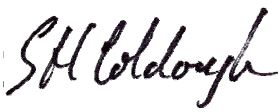 SM Coldough